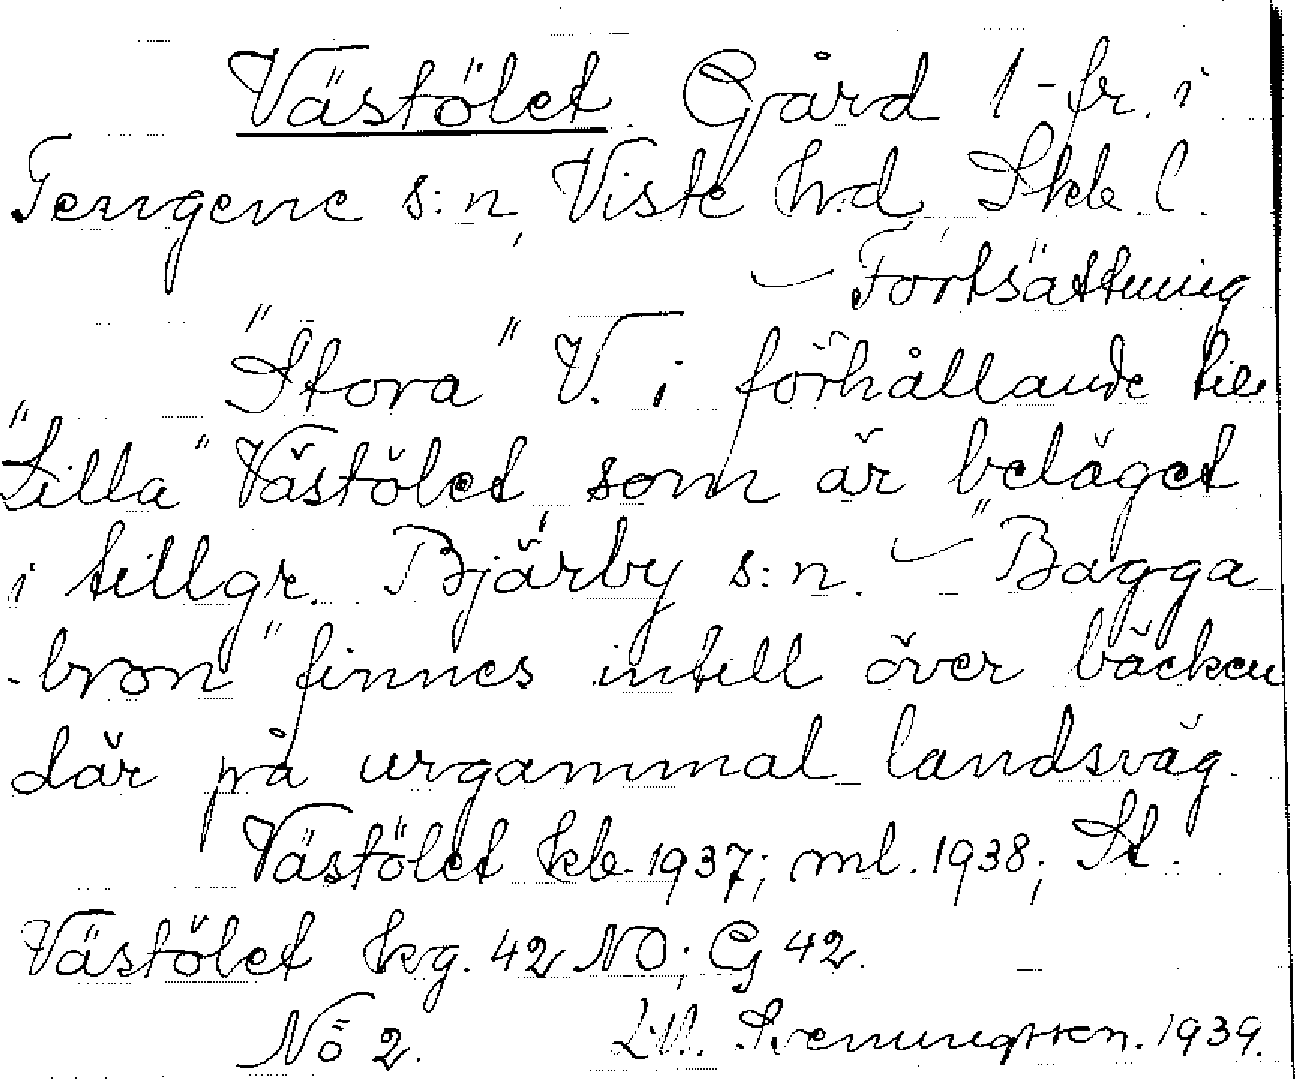 Västölet. Gård 1-fr. i
Tengene s:n, Viste hrd, Skb. l.
— Fortsättning
"Stora" V. i förhållande till
"Lilla" Västölet som är beläget
i tillgr. Bjärby s:n. — "Bagga
-bron" finnes intill över bäcken
där på urgammal landsväg.
Västölet kb. 1937; ml. 1938; St.
Västölet kg. 42 NO; G 42.
Nö 2. Sveningsson. 1939.